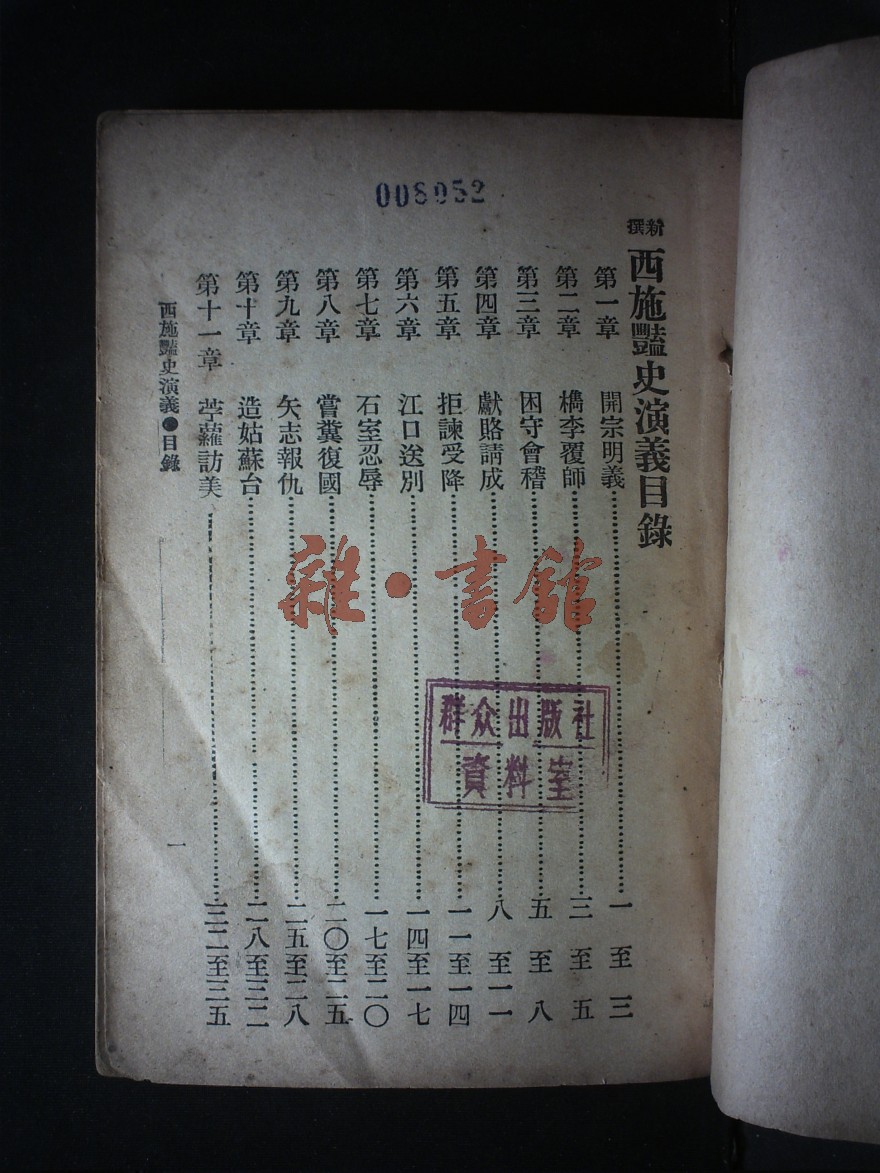 008052
新撰
西施豔史演義目錄
第一章 開宗明義 一至三
第二章 檇李覆師 三至五
第三章 困守會稽 五至八
第四章 獻賂請成 八至一一
第五章 拒諫受降 一一至一四
第六章 江口送別 一四至一七
第七章 石室忍辱 一七至二〇
第八章 嘗糞復國 二〇至二五
第九章 矢志報仇 二五至二八
第十章 造姑蘇台 二八至三二
第十一章 苧蘿訪美 三二至三五
西施豔史演義●目錄
一
雜·書館
群众出版社
資料室